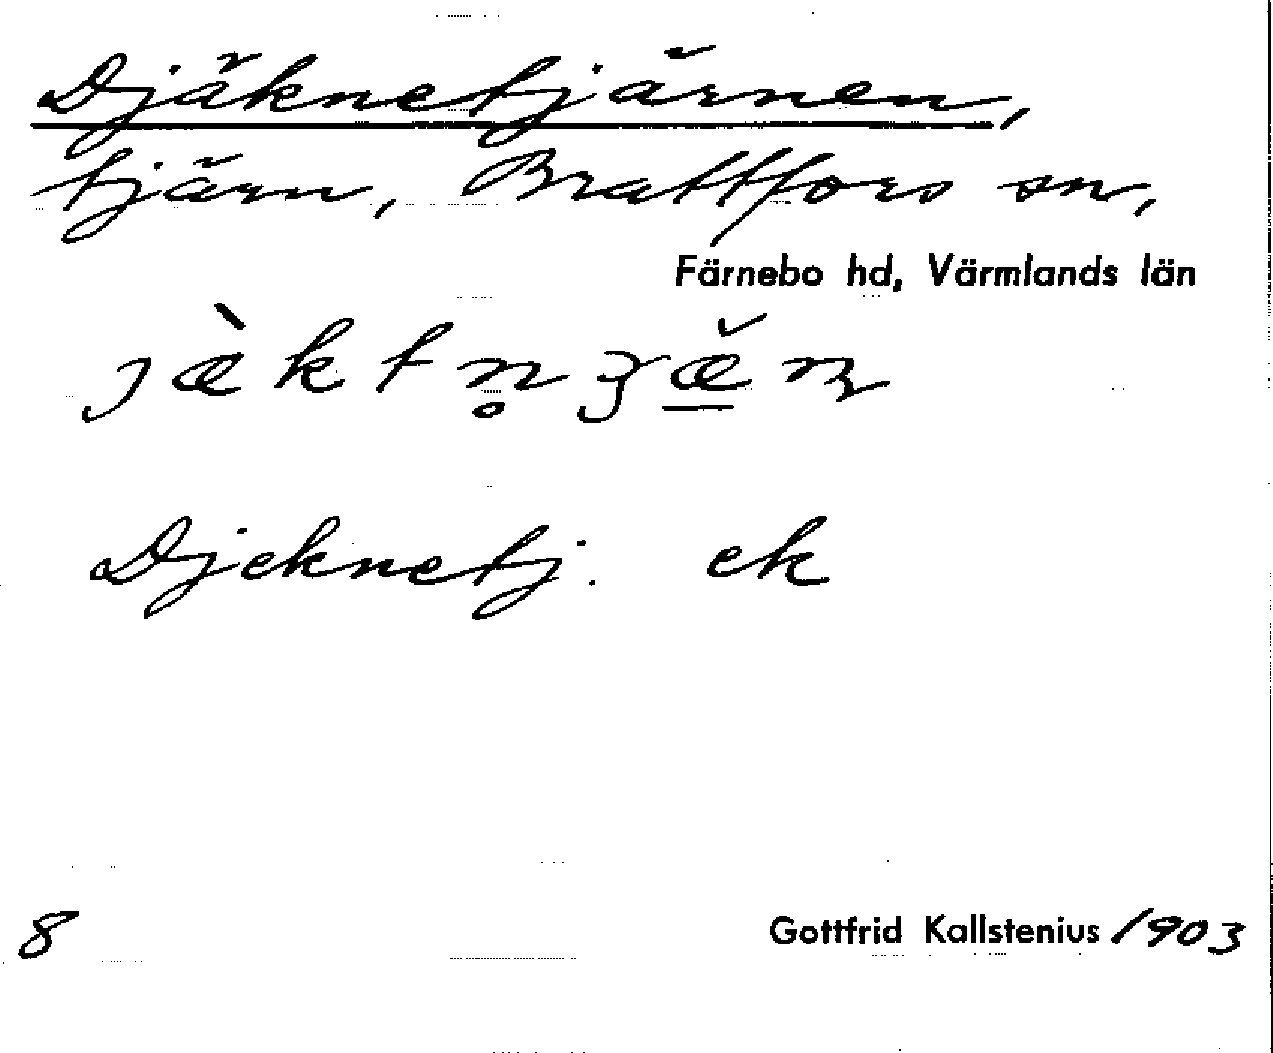 Djäknetjärnen,
tjärn, Brattfors sn,
Färnebo hd, Värmlands län
Djeknetj. ek
8
Gottfrid Kallstenius 1903